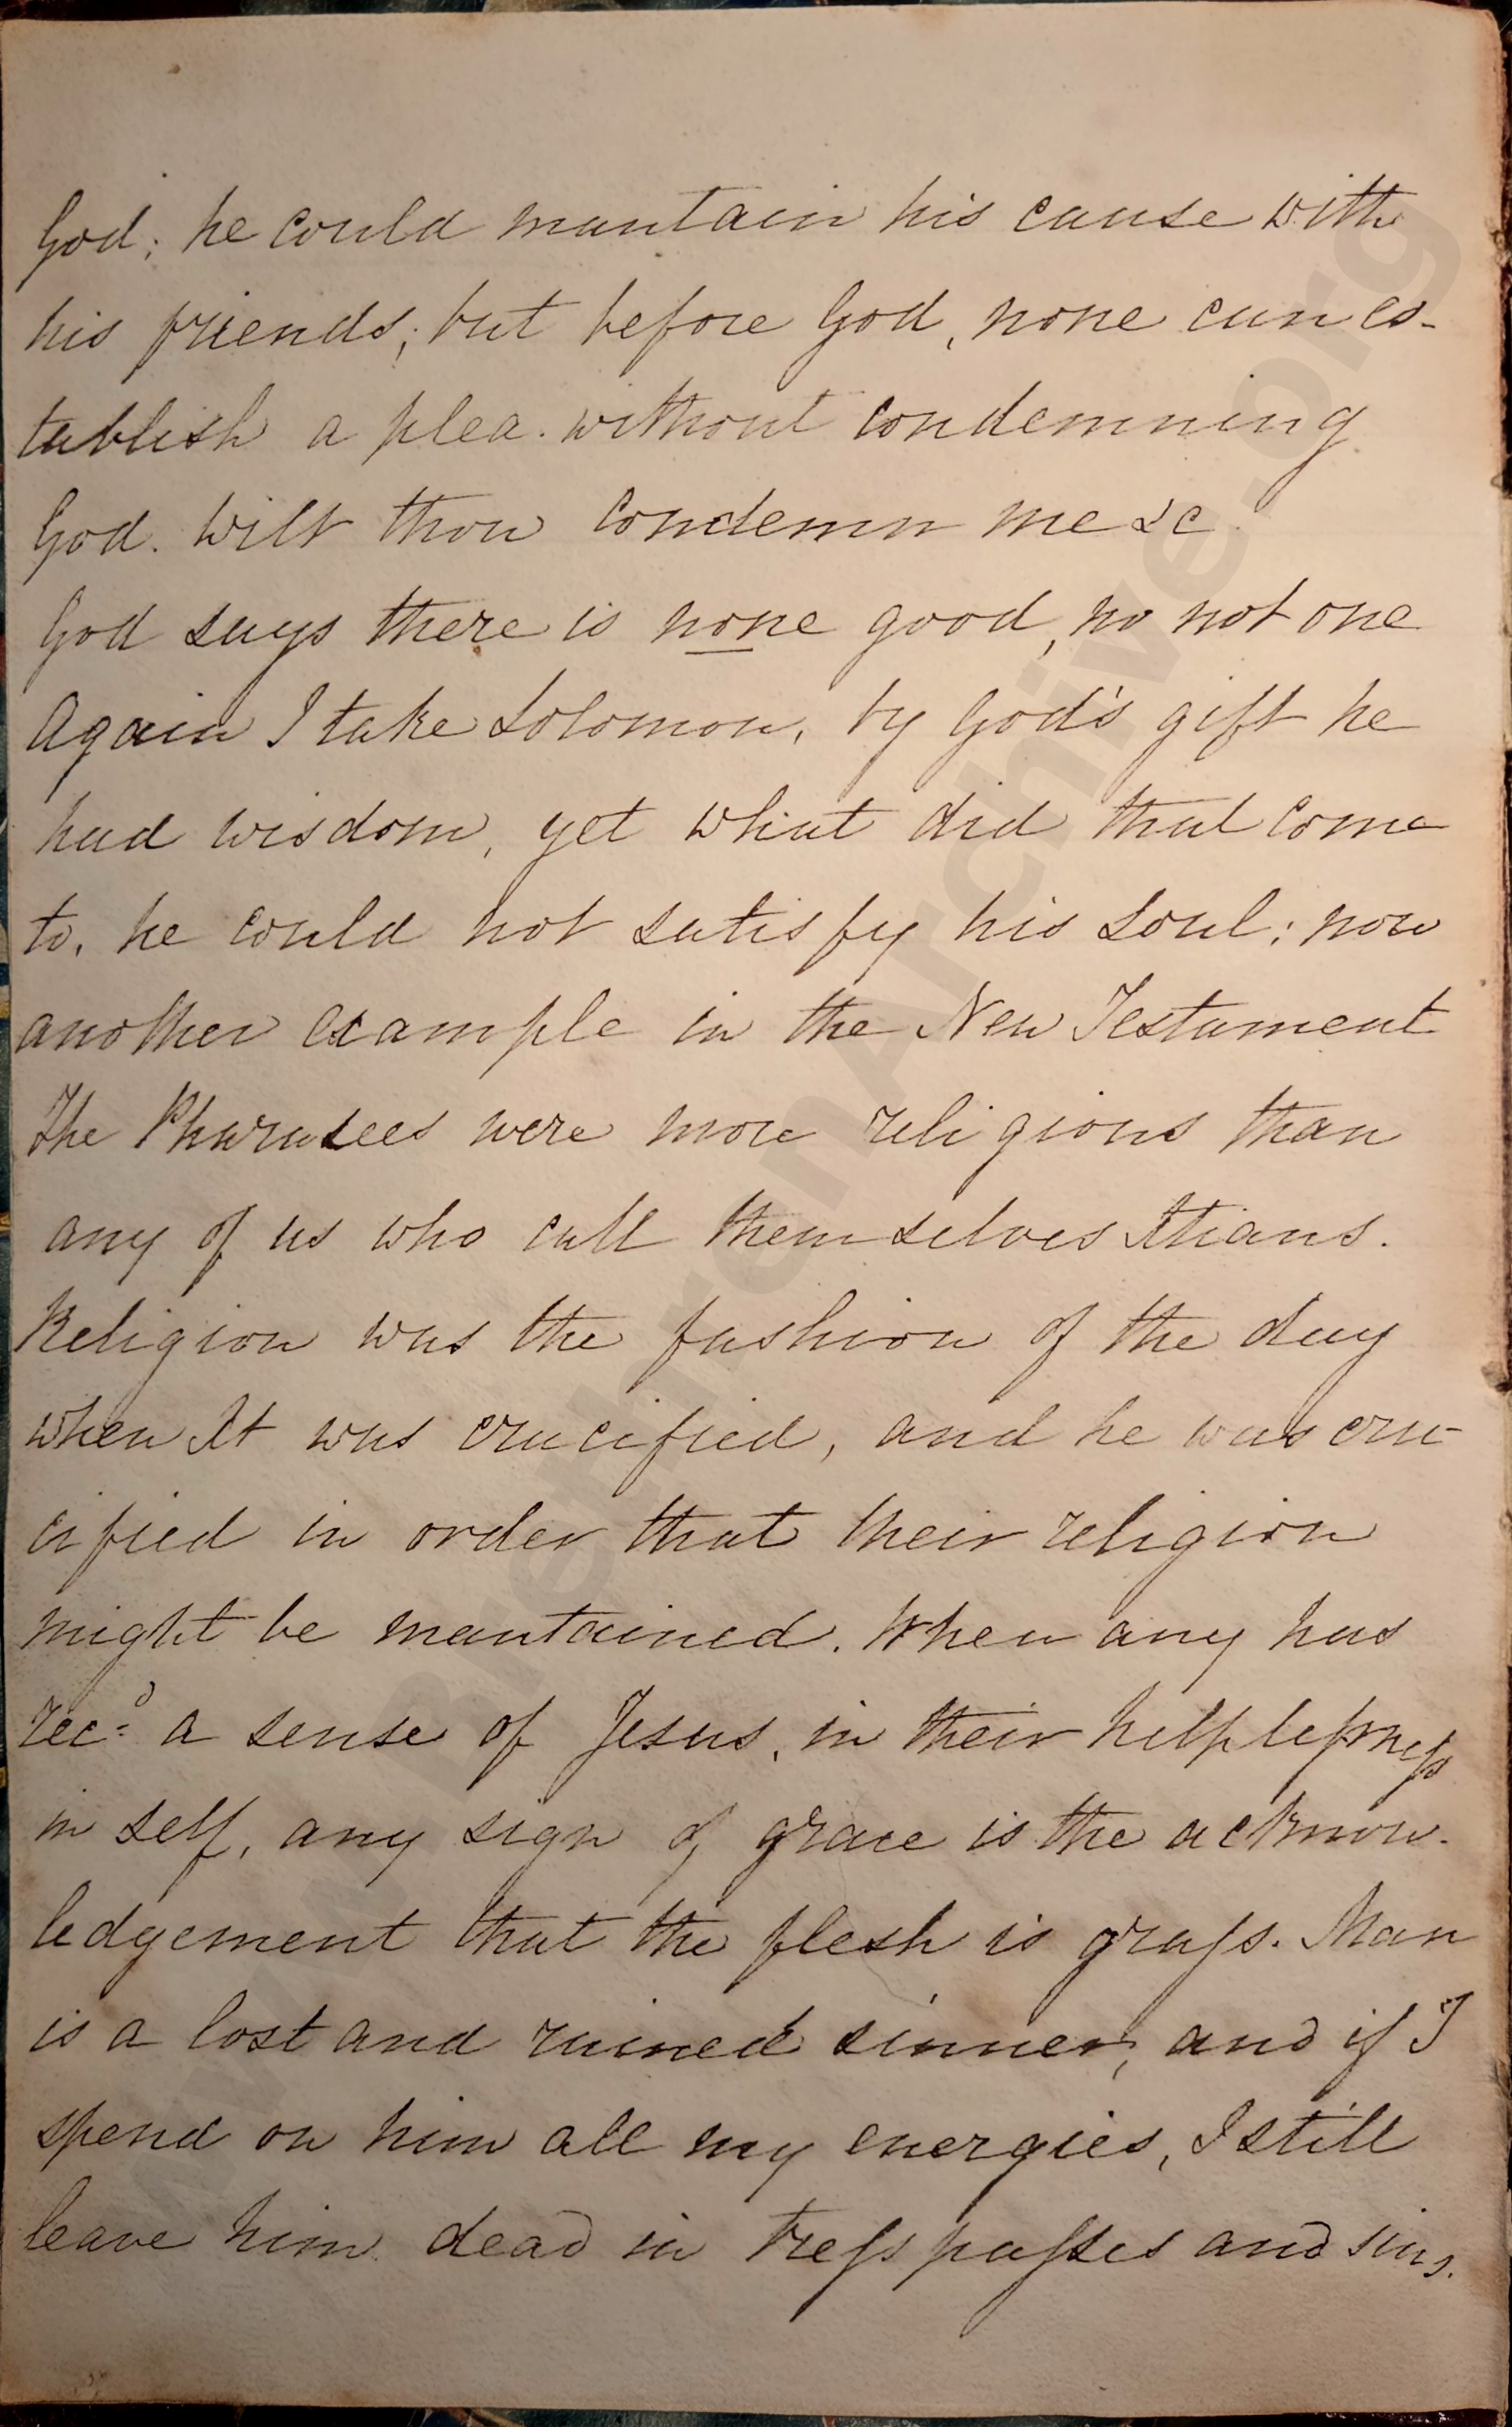 God; he could mantain his cause with
his friends; but before God, none can es-
tablish a plea. without condemning
God. Wilt thou condemn me &c.
God says there is none good, no not one
Again I take Solomon, by God's gift he
had wisdom, yet what did that come
to, he could not satisfy his soul; now
another example in the New Testament
The Pharasees were more religious than
any of us who call themselves Xtians.
Religion was the fashion of the day
when Xt was crucified, and he was cru-
cified in order that their religion
might be mantained. When any has
rec:d a sense of Jesus, in their helplessness
in self, any sign of grace is the acknow-
ledgement that the flesh is grass. Man
is a lost and ruined sinner, and if I
spend on him all my energies, I still
leave him dead in tresspasses and sins.
www.BrethrenArchive.org